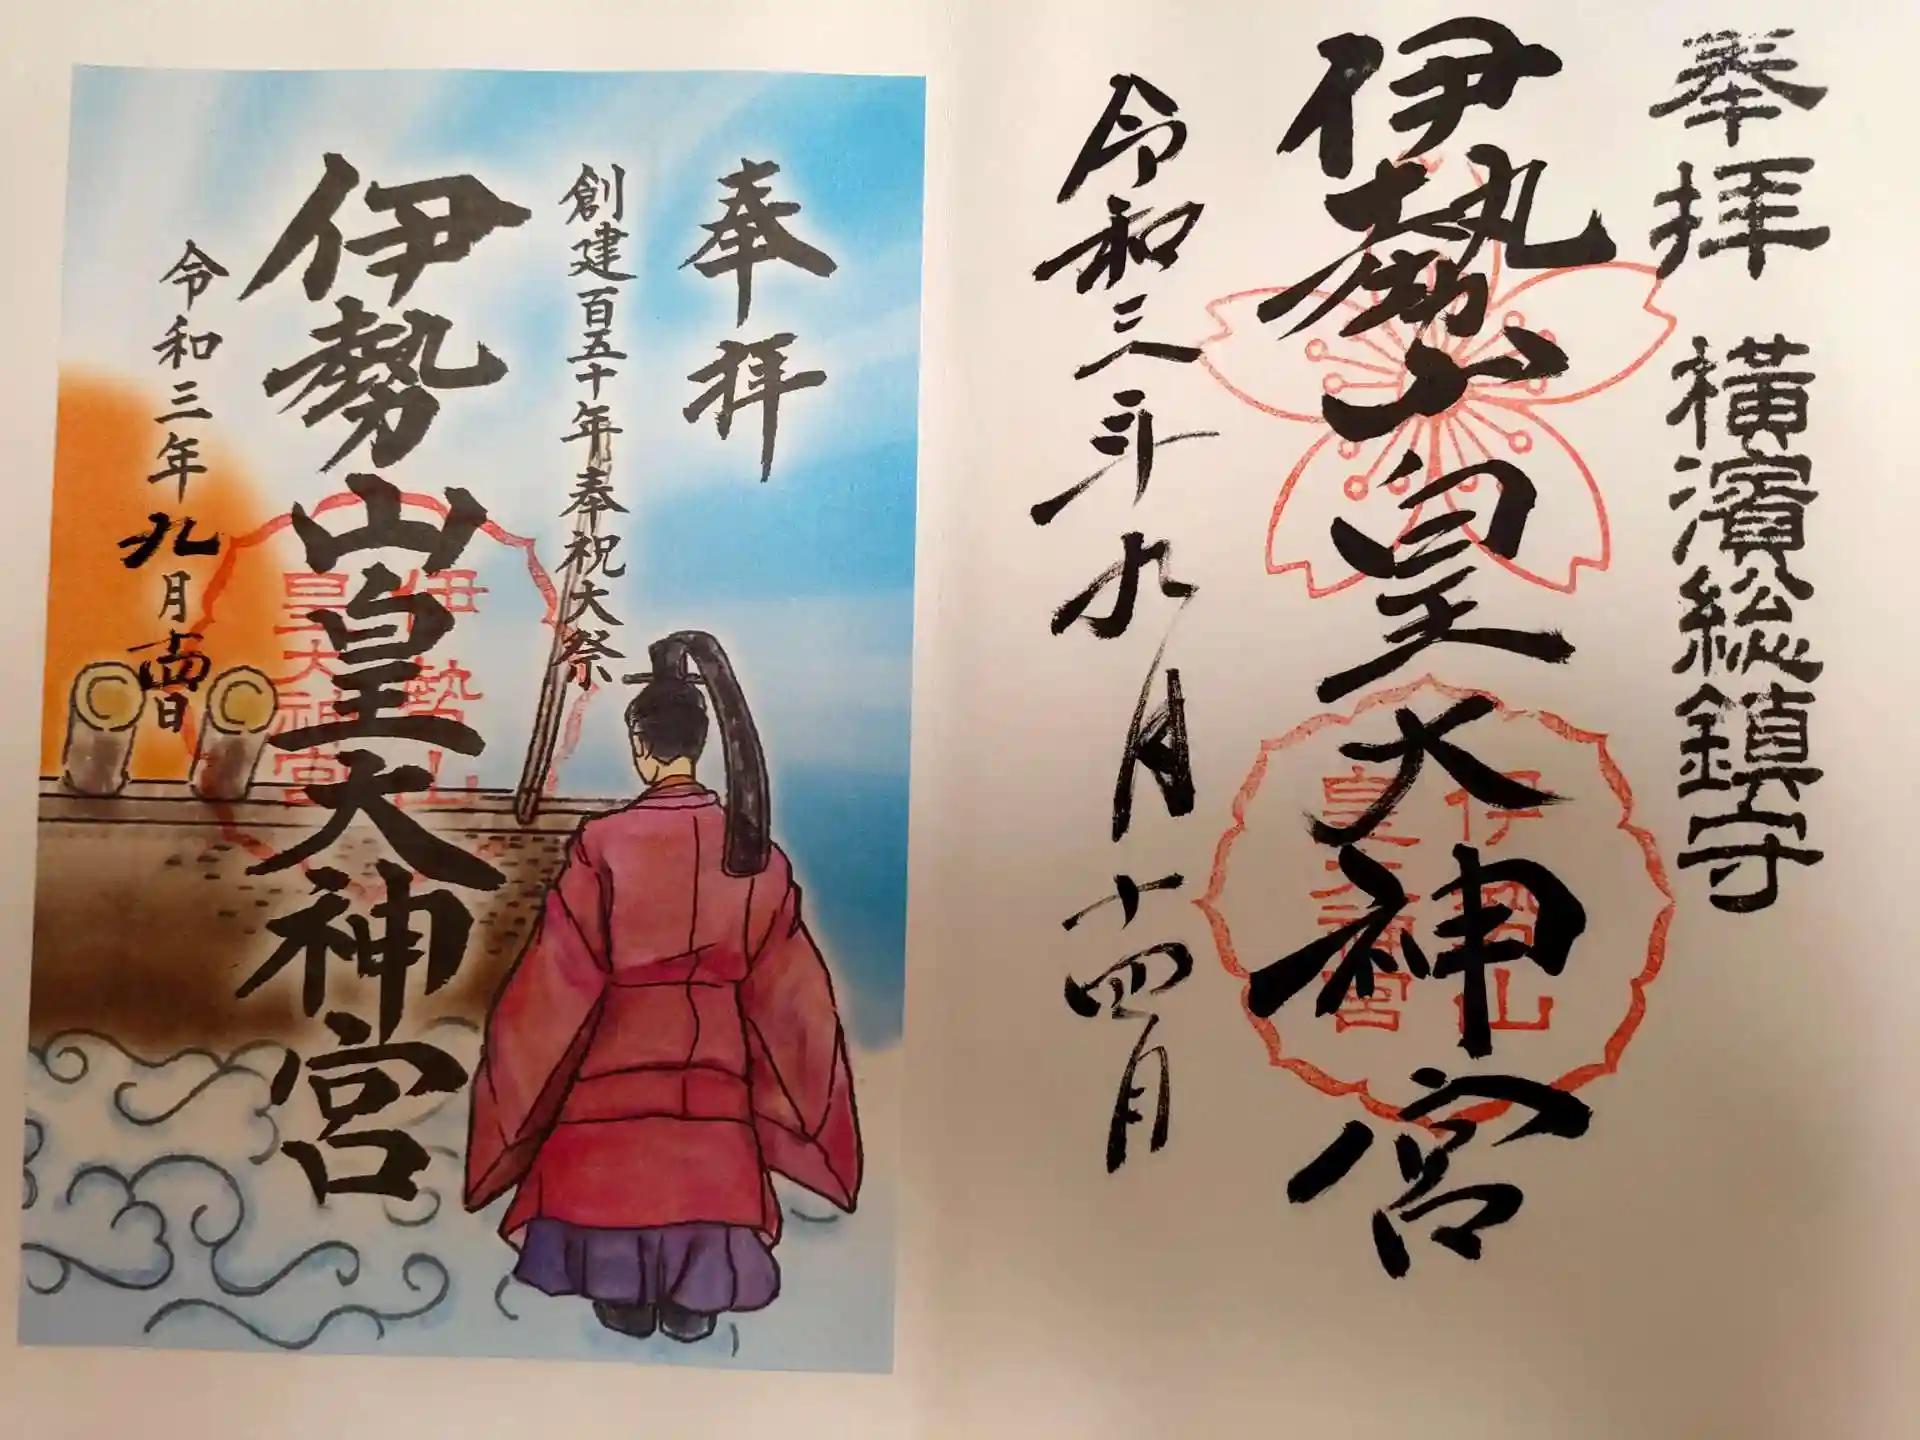 奉拝
横濱総鎮守
伊勢山皇大神宮
伊勢山
皇大神宮
令和三年九月十四日
奉拝
創建百五十年奉祝大祭
伊勢山皇大神宮
伊勢山
皇大神宮
令和三年九月十四日